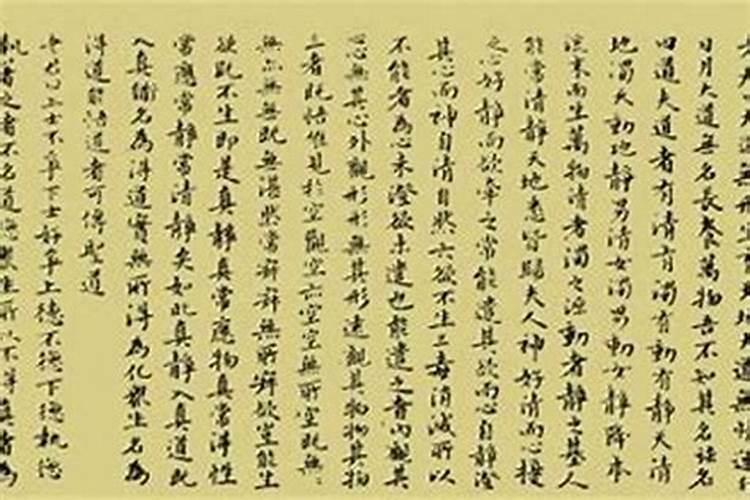 日月大道無名長養萬物吾不知其名強名
曰道夫道者有清有濁有動有靜天清
地濁天動地靜男清女濁男動女靜降本
流末而生萬物清者濁之源動者靜之基人
能常清靜天地悉皆歸夫人神好清而心擾
之心好靜而欲牽之常能遣其欲而心自靜澄
其心而神自清自然六欲不生三毒消滅所以
不能者為心未澄欲未遣也能遣之者內觀其
心無其心外觀形形無其形遠觀其物物其物
三者既悟唯見於空觀空亦空空無所空既無
無亦無無既無湛然常寂寂無所寂欲豈能生
欲既不生即是真靜真常應物真常得性
常應常靜常清靜矣如此真靜入真道既
入真道名為得道實無所得為化眾生名為
得道能悟道者可傳聖道
老君曰上士不爭下士好爭上德不德下德執德
執著之者不名道德眾生所以不得真道者為